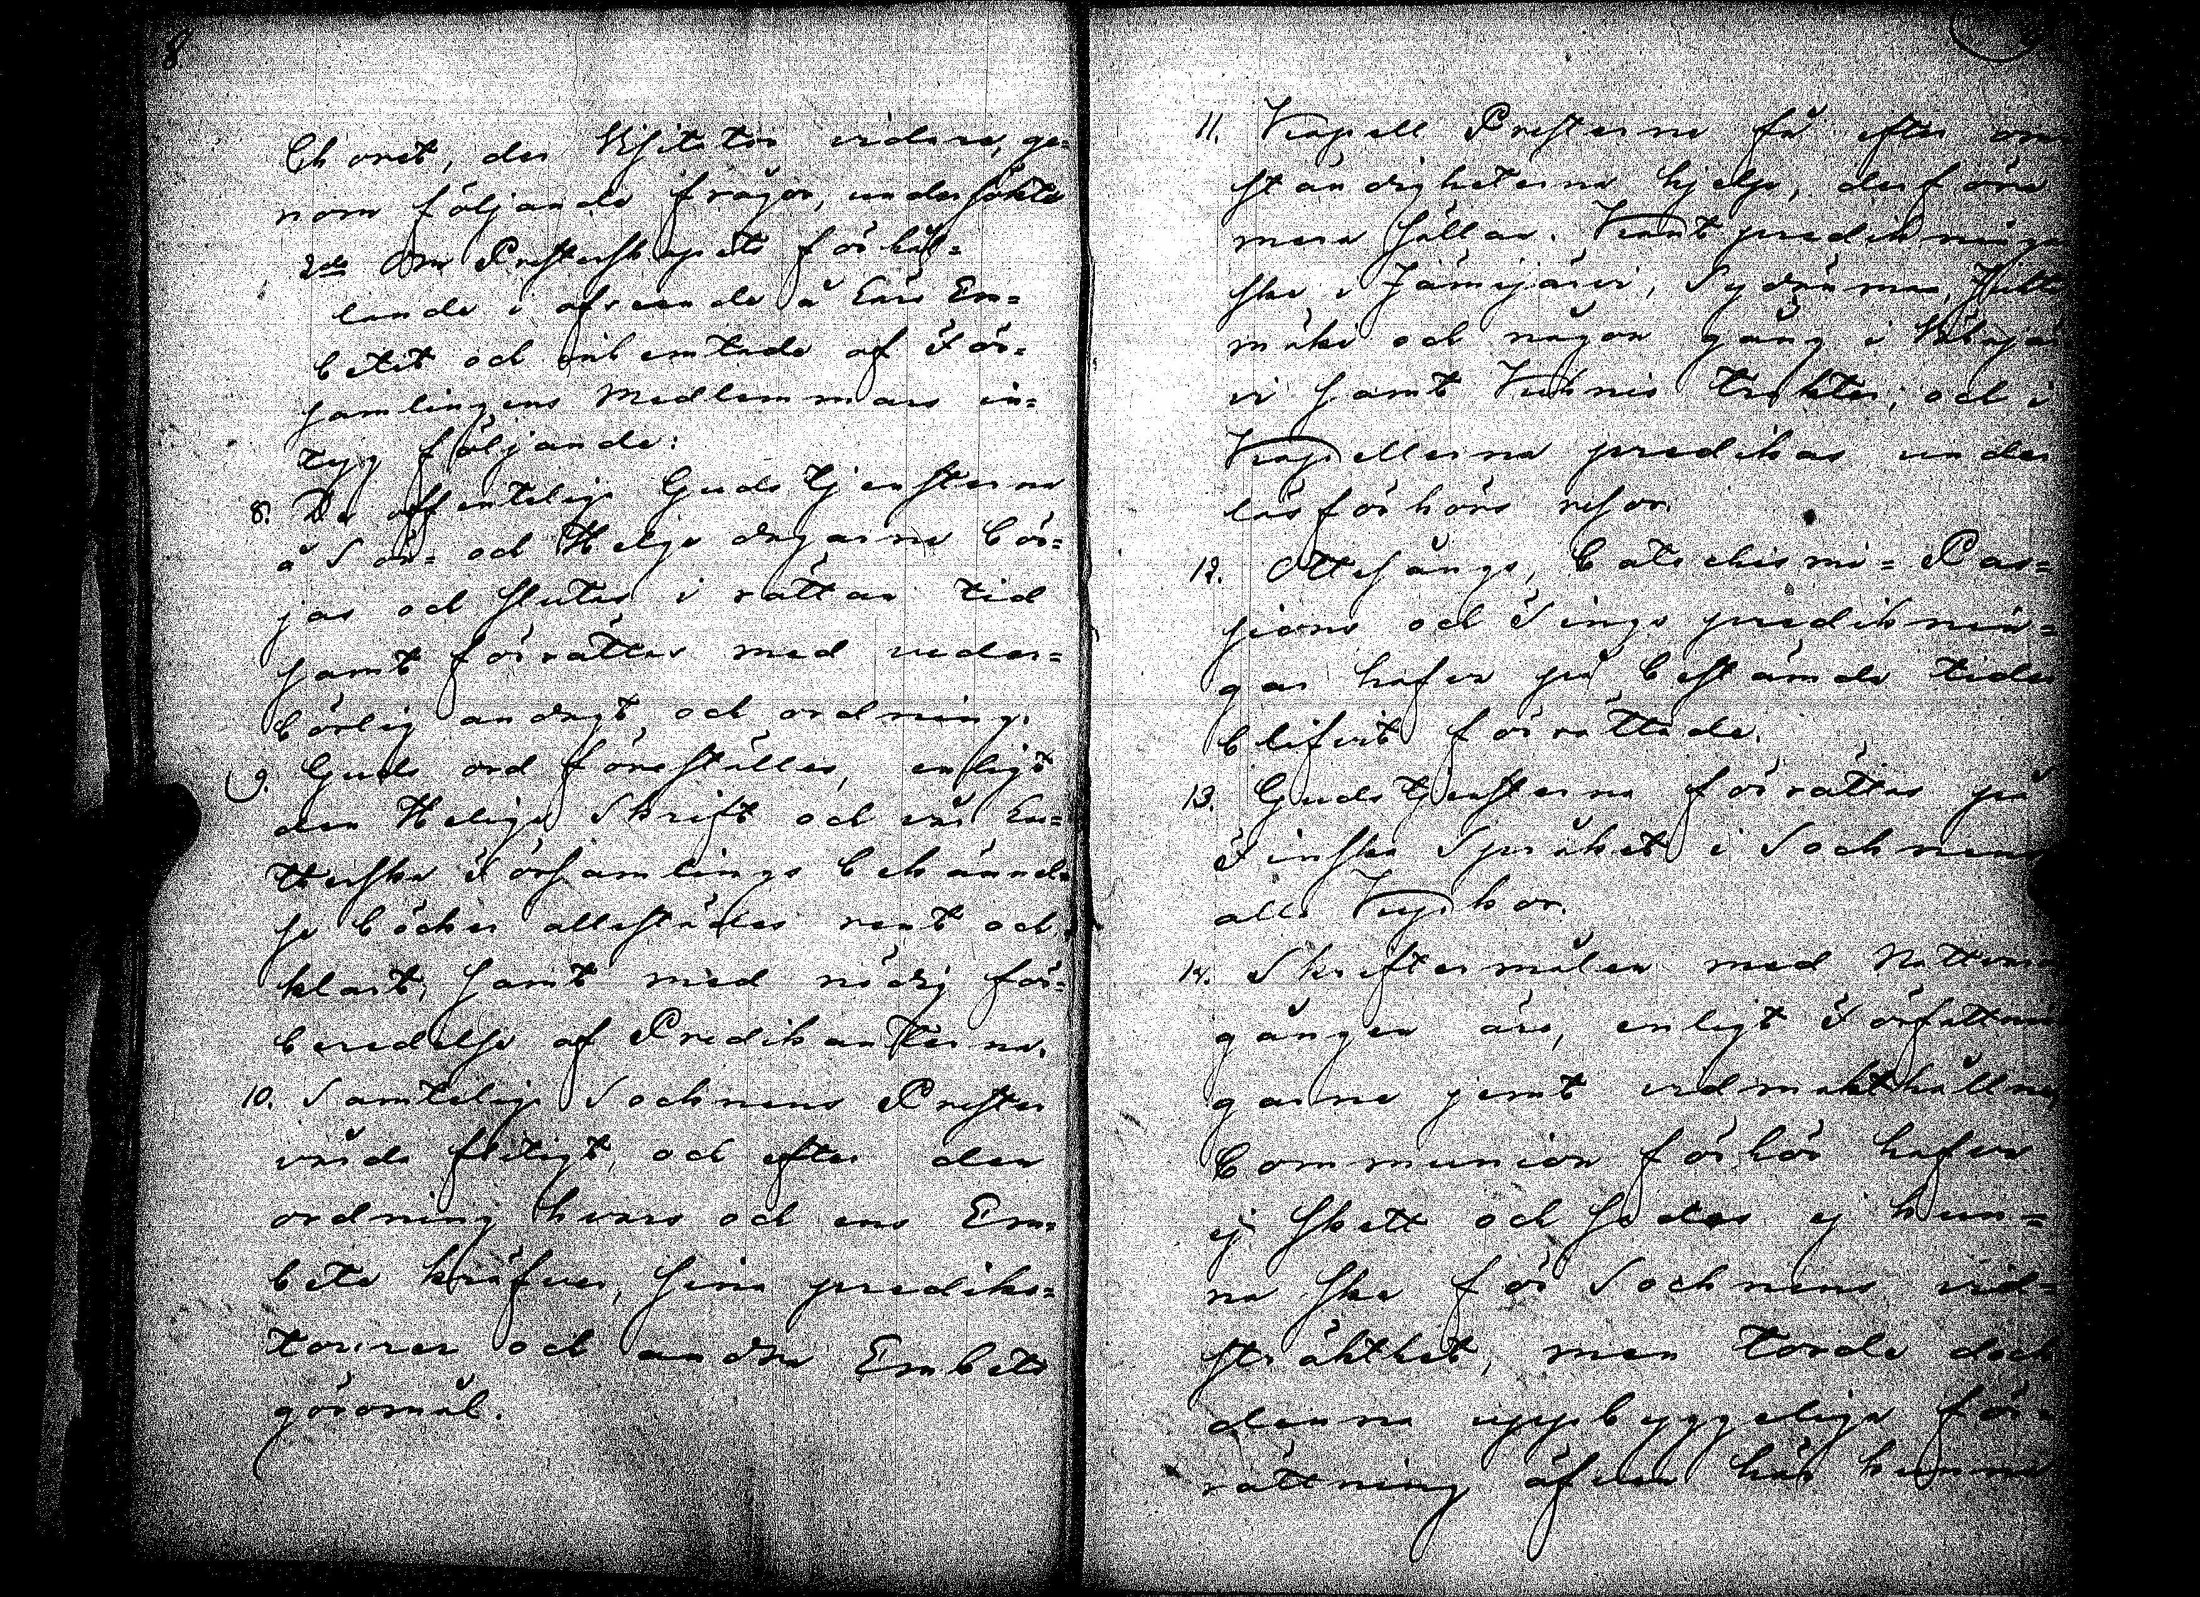 8
Choret, der Visitator vidare, ge=
nom följande frågor, undersökte
2do Om Presterskapets förhål=
lande i afseende å Lära Em=
betet och inhemtade af För=
samlingens Medlemmars in=
tyg följande:
8. De offentelige Gudstjensterna
å Sön= och Helge dagarna bör=
jas och slutas i rättan tid
samt förrättas med veder=
börlig andagt och ordning.
9. Guds ord föreställes, enligt
den Heliga Skrift och vår Lu=
therska Församlings bekännel
se böcker allestädes rent och
klart, samt med nödig för=
beredelse af Predikanterna.
10. Samtelige Sochnens Prester
vårda flitigt, och efter den
ordning hvars och ens Em=
bete kräfver, sina prediko=
turer och andra Embets
göromål.
11. Kapell Presterna få efter om
ständigheterna hjelp, derföre
mera sällan. predikningar
ske i Jämijärvi, Sydänmaa,
mäki och någon gång i
vi samt trakter, och i
Kapellerna predikas under
läsförhörs resor.
12. Ottesångs, Catechismi= Pas=
sions och Tings prediknin=
gar hafva på bestämda tider
blifvit förrättade.
13. Gudstjensterna förrättas på
Finska Språket i Sochnens
alla Kyrkor.
14. Skriftermålen med Nattvard
gången äro, enligt Författnin
garna jemt vidmakthållna,
Communion förhör hafva
ej skett och sades ej kun=
na ske för Sochnens vid=
sträkthet, men torde doch
denna uppbyggeliga för=
rättning äfven här kunna